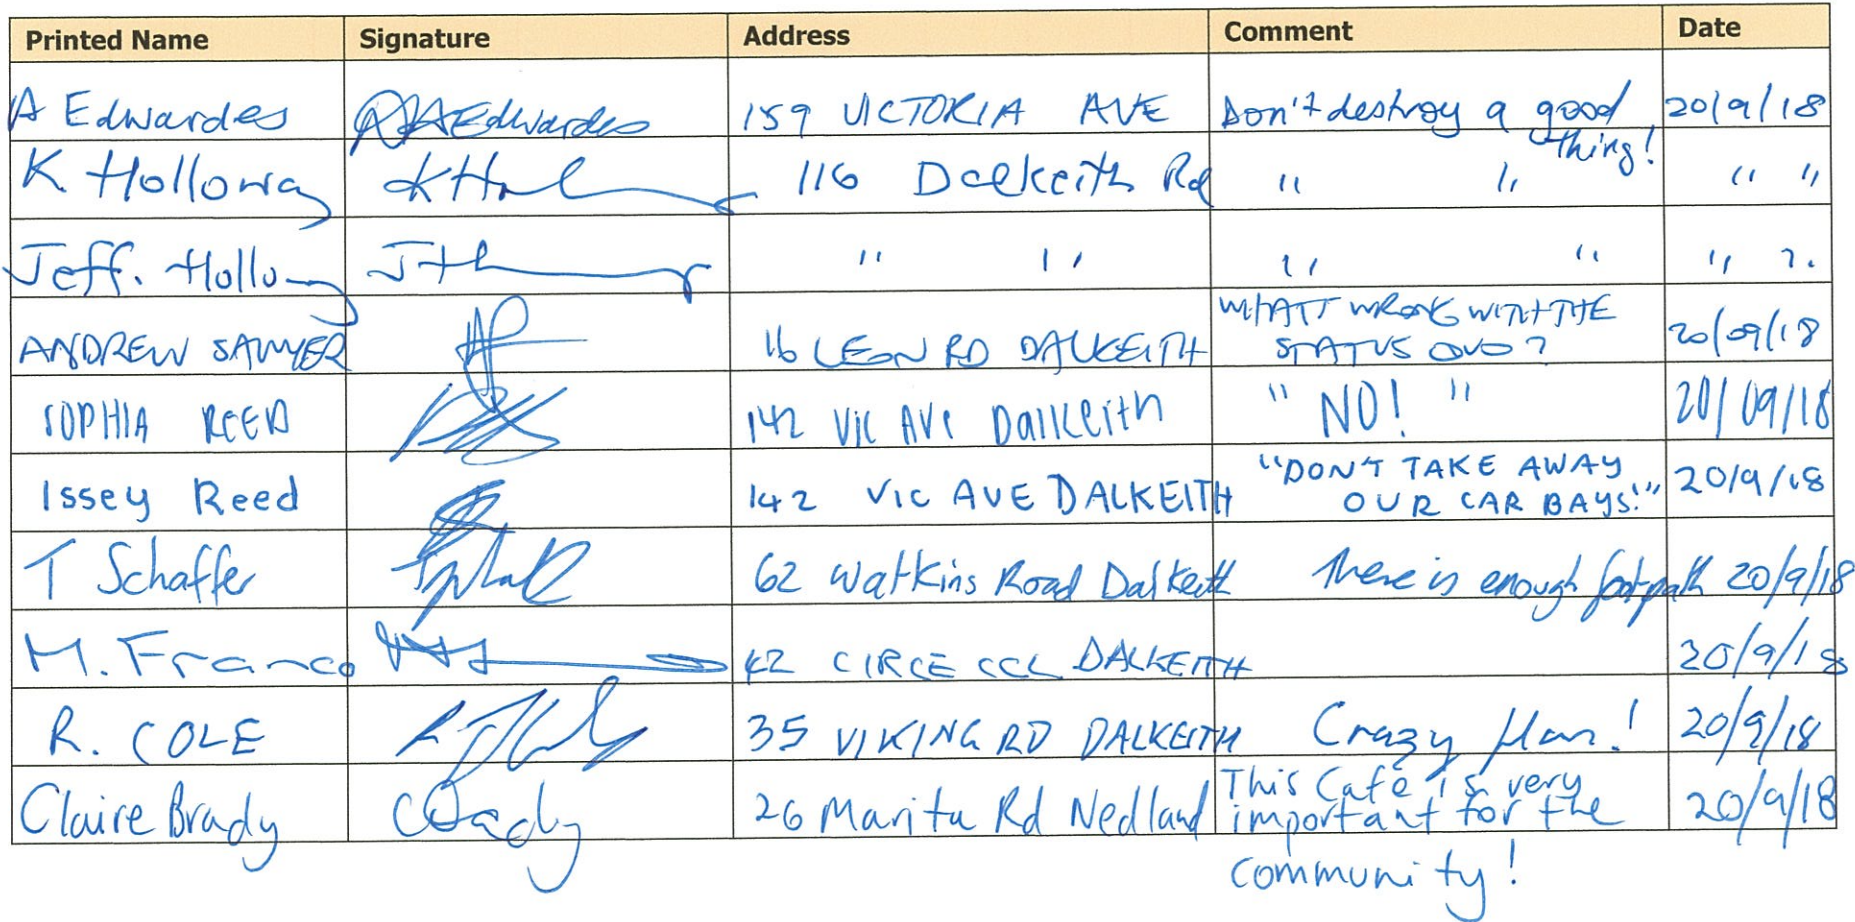 Printed Name Signature Address Comment Date
A Edwardes AEdwardes 159 VICTORIA AVE Don't destroy a good thing! 20/9/18
K Holloway 116 Dalkeith Rd " " " "
Jeff. Hollo " " " " " "
ANDREW SAWYER 16 LEON RD DALKEITH WHATT WRONG WITH THE
STATUS QUO? 20/09/18
SOPHIA REED 142 VIC AVE Dalkeith " NO! " 20/09/18
Issey Reed 142 VIC AVE DALKEITH "DON'T TAKE AWAY
OUR CAR BAYS!" 20/9/18
T Schaffer 62 Watkins Road Dalkeith There is enough footpath 20/9/18
M. Franco 42 CIRCE CCL DALKEITH 20/9/18
R. COLE 35 VIKING RD DALKEITH Crazy Plan! 20/9/18
Claire Brady CBrady 26 Marita Rd Nedland This Café is very
important for the
community! 20/9/18